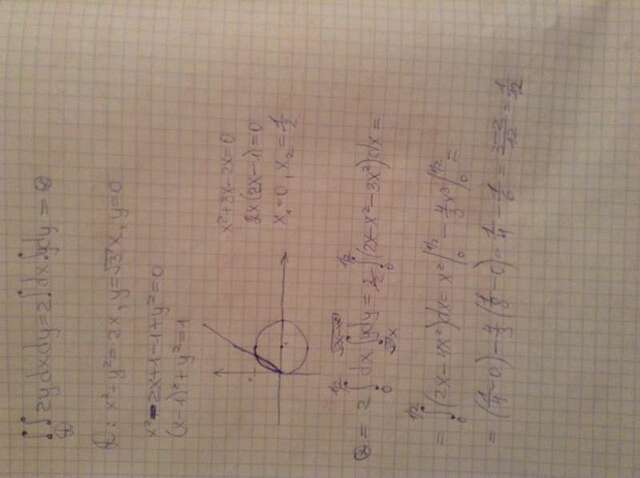 ∬_D 2y dx dy = 2∫dx∫y dy = ⊗
D: x²-y²=2x, y=√3x, y=0
x²-2x+1-1+y²=0
(x-1)²+y²=1
x²+3x-2x=0
2x(2x-1)=0
x₁=0, x₂=1/2
⊗ = 2∫₀^{1/2} dx ∫_{√3x}^{√(2x-x²)} y dy = 2/2 ∫₀^{1/2} (2x-x²-3x²) dx =
= ∫₀^{1/2} (2x-4x²) dx = x²|₀^{1/2} - 4/3 x³|₀^{1/2} =
= (1/4-0) - 4/3(1/8-0) = 1/4 - 1/6 = (3-2)/12 = 1/12